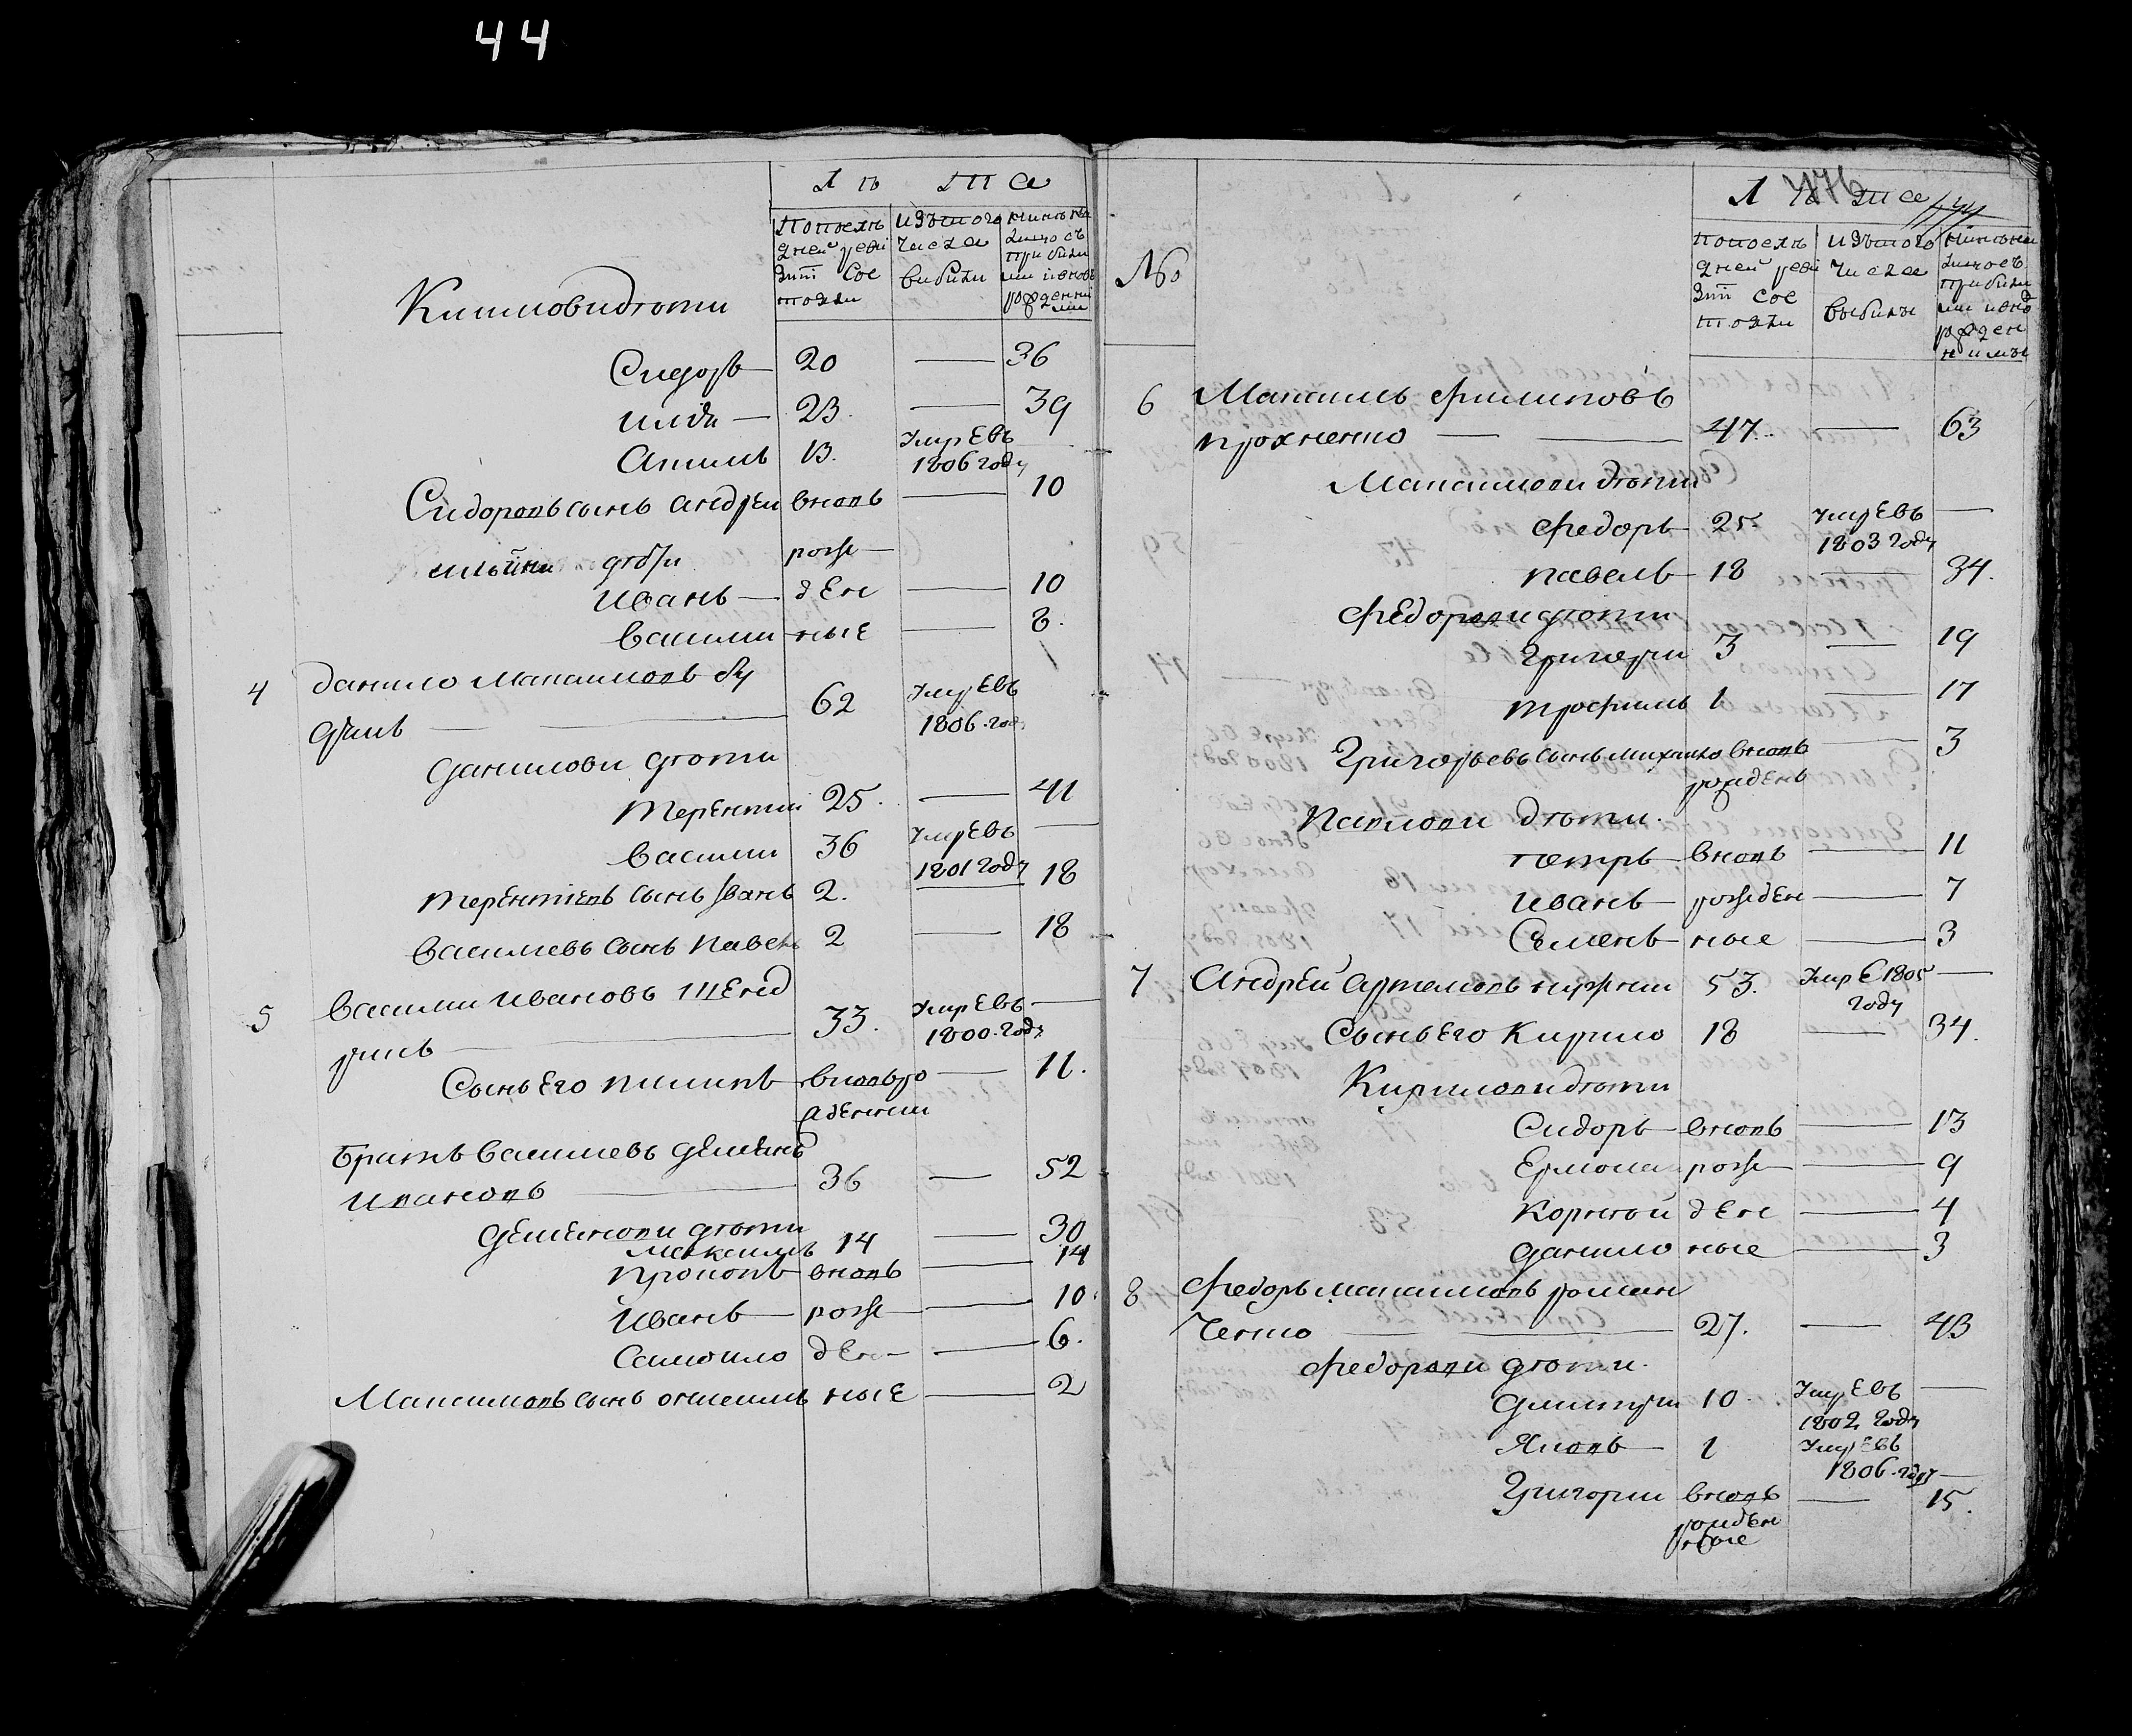 44
Лѣта
Попослѣ дней реви зiи сос тояли
изътого числа вибили
Нинѣ на лицо съ прибили ми иновь рожденни ми
Климовидѣти
Сидоръ — 20 — 36
илия — 23 — 39
Акимъ 13. умръ Евъ
1806 году
Сидоровъ сынъ андреи вновь — 10
ильины дѣти рожде
Иванъ — ден — 10
василии ные — 8.
4 данило Максимовъ бу
дникъ — 62 умръ Евъ
1806 году
даниловы дѣти
терентии 25. — 41
василии 36 умръ Евъ —
1801 году
терентiевъ сынъ Iванъ 2. — 18
василиевъ сынъ павелъ 2 — 18
5 василии ивановъ
33. умръ Евъ —
1800 году
Сынъ Его Филипъ вновь ро — 11.
жденнии
братъ василиевъ деменъ
ивановъ — 36 — 52
деменови дѣти
максимъ 14 — 30
прокопъ вновь — 14
иванъ — рожде — 10.
самоило ден — 6.
Максимовъ сынъ ные — 2
476
№
Лѣта
попослѣ дней реви зiи сос тояли
изътого числа выбилы
нинѣ на лицо съ прибили ми внов рожден нимы
6 Максимъ филиповъ
прохненко — 47. — 63
Максимови дѣти
федоръ 25. умръ Евъ —
1803 году
павелъ — 18 — 34.
федорови дѣти
григории 3 — 19
трофимъ 1 — 17
Григорьевъ сынъ михаило вновь — 3
рожденъ
Павлови дѣти.
петръ вновь — 11
иванъ рожден — 7
Семенъ ные — 3
7 андрей артемовъ 53. умръ Е 1805 —
году
Сынъ Его Кирило 18 — 34.
Кирилови дѣти
Сидоръ вновь — 13
Ермола рожде — 9
Корней ден — 4
данило ные — 3
8 федоръ максимовъ роман
ченко — 27. — 43
федорови дѣти.
дмитри 10. умръ Евъ —
1802 году
Яковъ 1 умръ Евъ
1806 году —
Григории вновь — 15.
рожден
ные